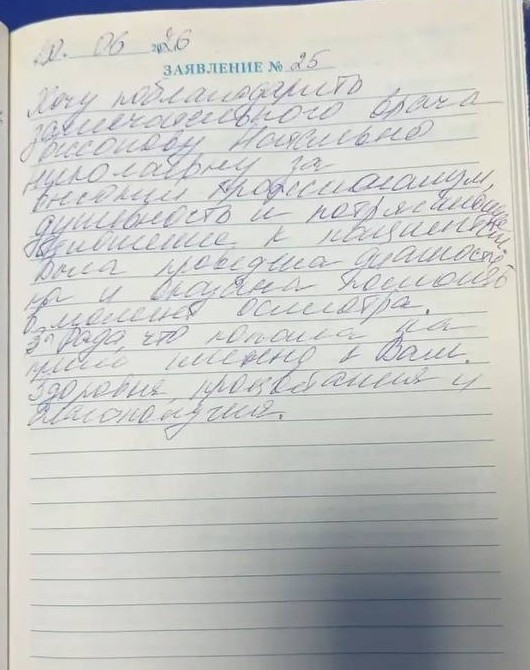 06 2026
ЗАЯВЛЕНИЕ № 25
Хочу поблагодарить
замечательного врача
Наталью
Николаевну за
высокий профессионализм,
душевность и потрясающее
отношение к пациентам.
Была проведена диагности-
ка и оказана помощь
в момент осмотра.
Рада, что попала на
приём именно к Вам.
Здоровья, процветания и
благополучия.